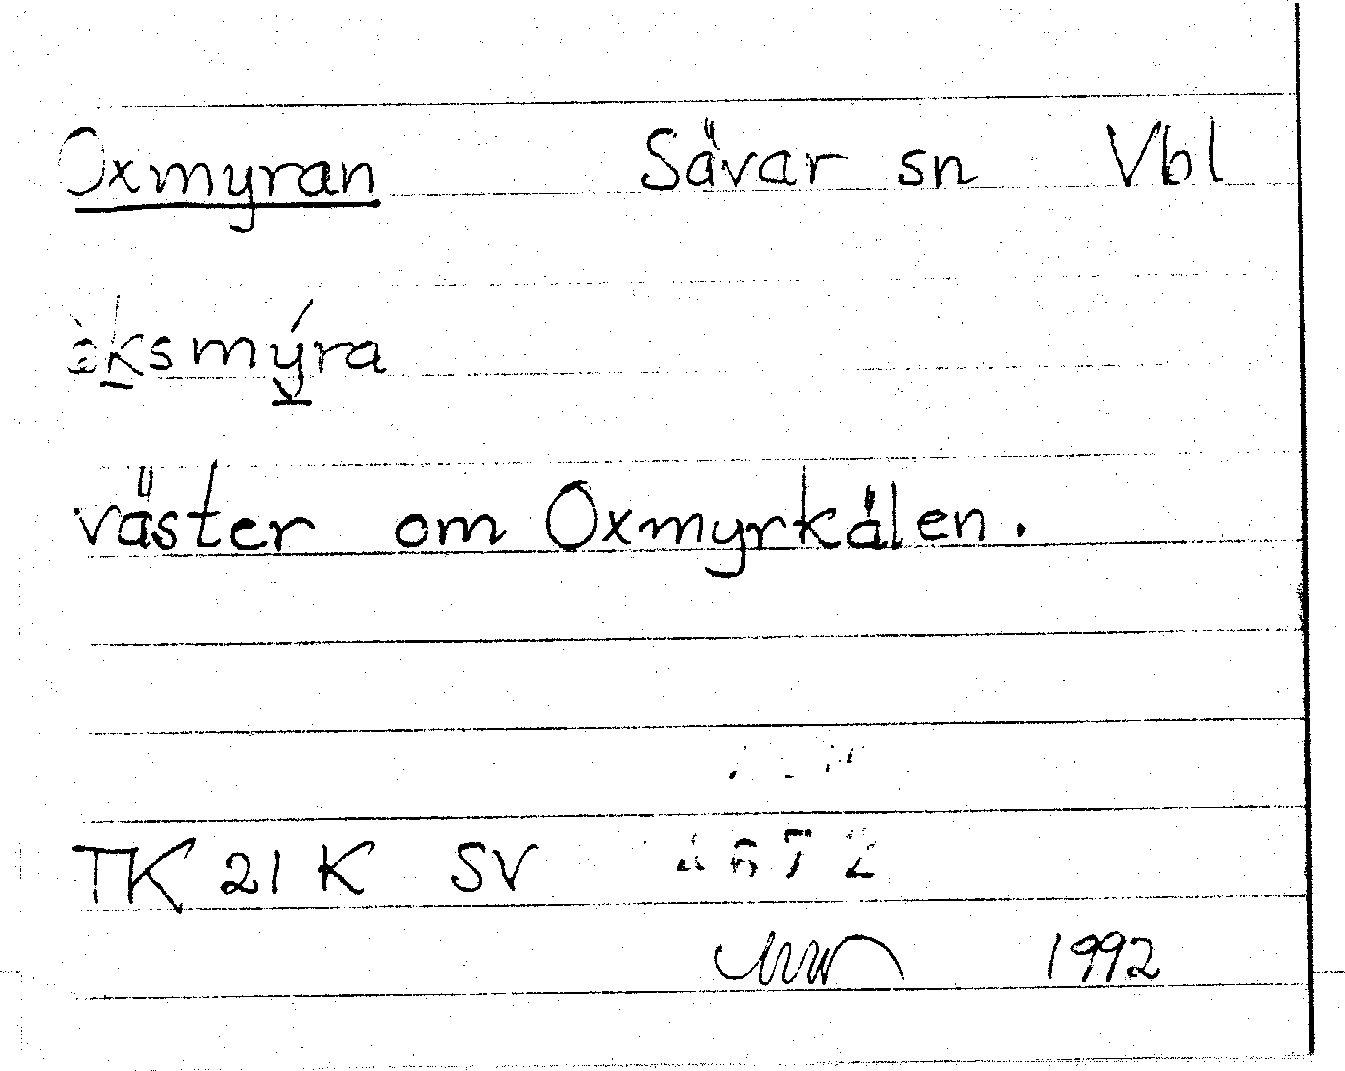 Oxmyran Sävar sn Vbl
väster om Oxmyrkålen.
TK 21 K SV
1992